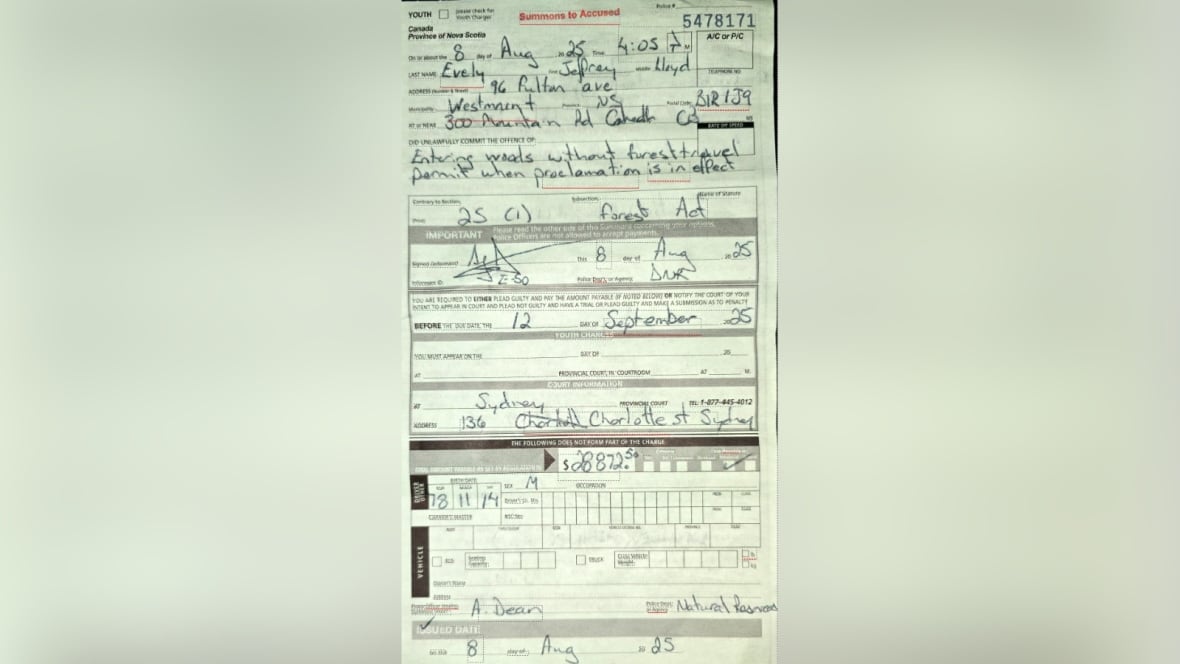 YOUTH please check for Youth Charges
Summons to Accused
5478171
Canada
Province of Nova Scotia
A/C or P/C
On or about the 8 day of Aug 2025 Time 4:05 P M
LAST NAME Evely First Jeffrey Middle Lloyd
TELEPHONE NO.
ADDRESS (Number & Street) 96 Fulton ave
Municipality Westmount Province NS Postal Code B1R 1J9
AT or NEAR 300 Mountain Rd CB NS
RATE OF SPEED
DID UNLAWFULLY COMMIT THE OFFENCE OF:
Entering woods without forest travel
permit when proclamation is in effect
Contrary to Section Subsection Name of Statute
25 (1) Forest Act
IMPORTANT Please read the other side of this Summons concerning your options.
Police Officers are not allowed to accept payments.
Signed (Informant) This 8 day of Aug 2025
Informant ID: E-50 Police Dep't. or Agency DNR
YOU ARE REQUIRED TO EITHER PLEAD GUILTY AND PAY THE AMOUNT PAYABLE (IF NOTED BELOW) OR NOTIFY THE COURT OF YOUR
INTENT TO APPEAR IN COURT AND PLEAD NOT GUILTY AND HAVE A TRIAL OR PLEAD GUILTY AND MAKE A SUBMISSION AS TO PENALTY
BEFORE THE DUE DATE, THE 12 DAY OF September 2025
YOUTH CHARGES
YOU MUST APPEAR ON THE DAY OF 20
AT PROVINCIAL COURT, IN COURTROOM AT M.
COURT INFORMATION
AT Sydney PROVINCIAL COURT TEL: 1-877-445-4012
ADDRESS 136 Charlotte st Sydney
THE FOLLOWING DOES NOT FORM PART OF THE CHARGE
TOTAL AMOUNT PAYABLE AS SET BY REGULATIONS $28872.50
BIRTH DATE SEX M OCCUPATION
78 11 14
VEHICLE
TRUCK
Owner's Name
Address
A. Dean Natural Resources
ISSUED DATE:
8 day of Aug 2025